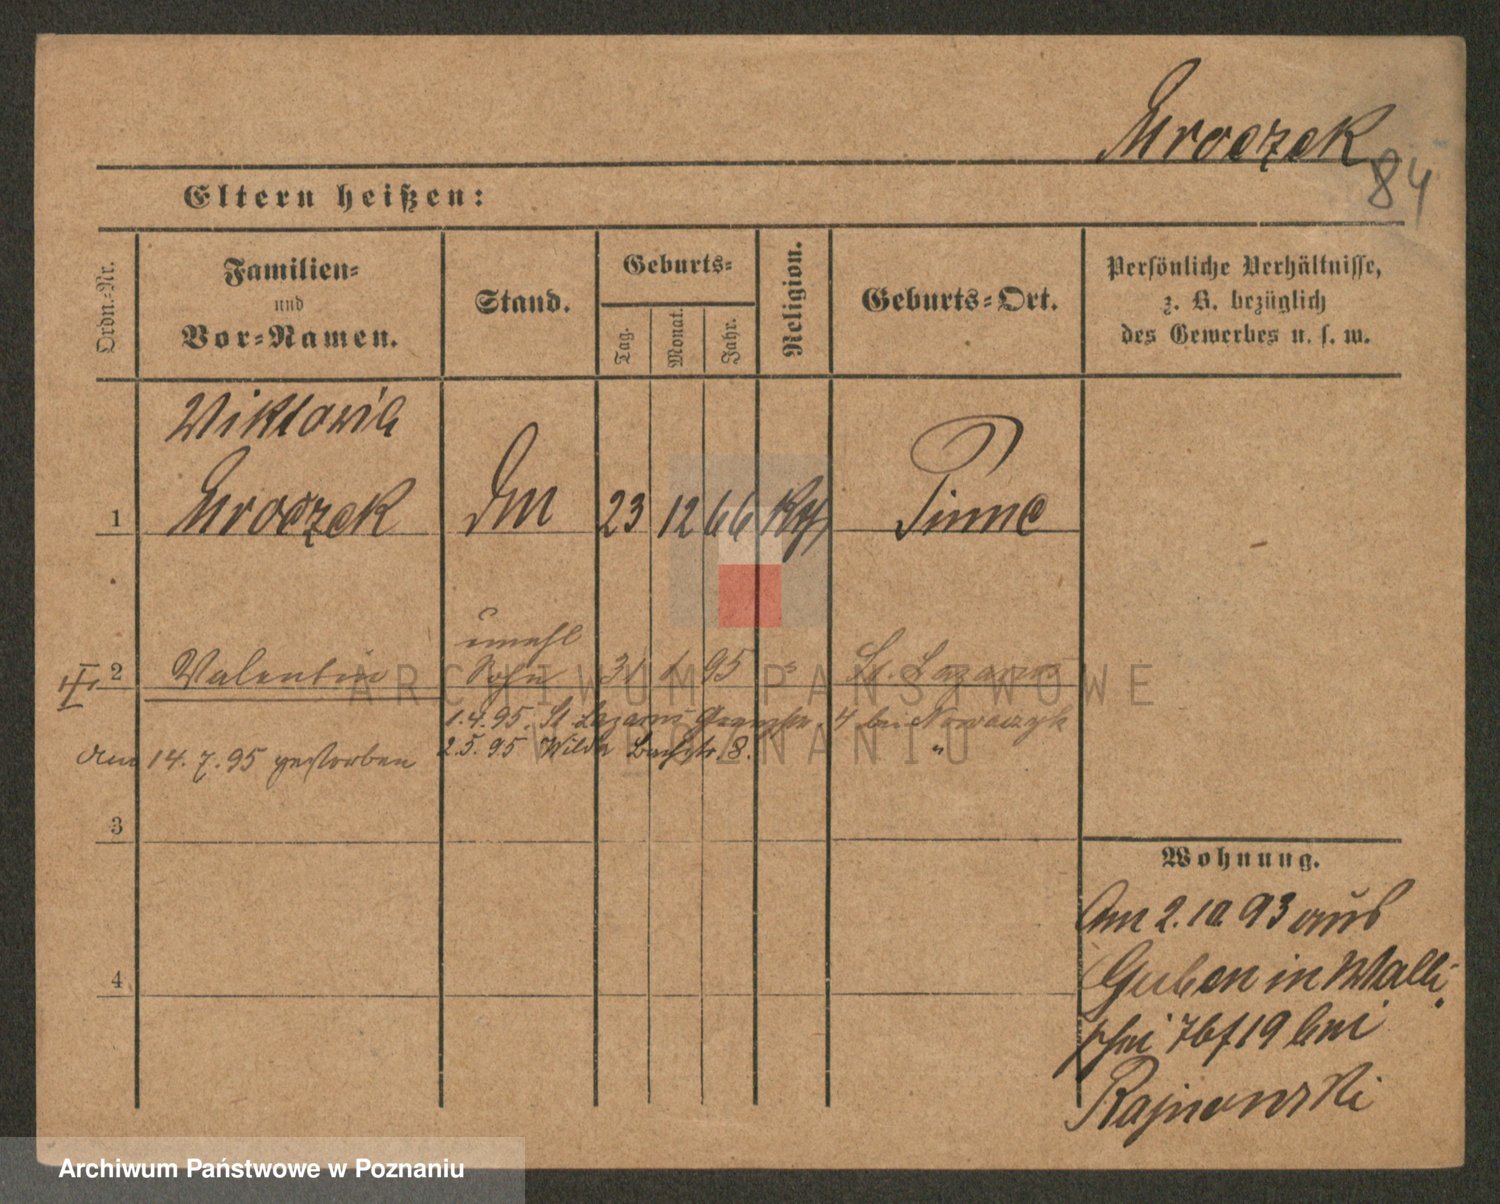 Mroczek
84
Eltern heißen:
Ordn.-Nr.
Familien-
und
Vor-Namen.
Stand.
Geburts-
Tag.
Monat.
Jahr.
Religion.
Geburts-Ort.
Persönliche Verhältnisse,
z. B. bezüglich
des Gewerbes u. s. w.
Viktoria
1 Mroczek 23 12 66 Pinne
unehl
2 Valentin Sohn 95 " St. Lazarus
1.4.95. St Lazarus 4 bei Nowaczyk
am 14.7.95 gestorben 2.5.95 Wilda Bachstr. 8. "
3
4
Wohnung.
Am 2.10.93 aus
Guben in Walli
schei 76/19 bei
Rajnowski
ARCHIWUM PAŃSTWOWE
W POZNANIU
Archiwum Państwowe w Poznaniu